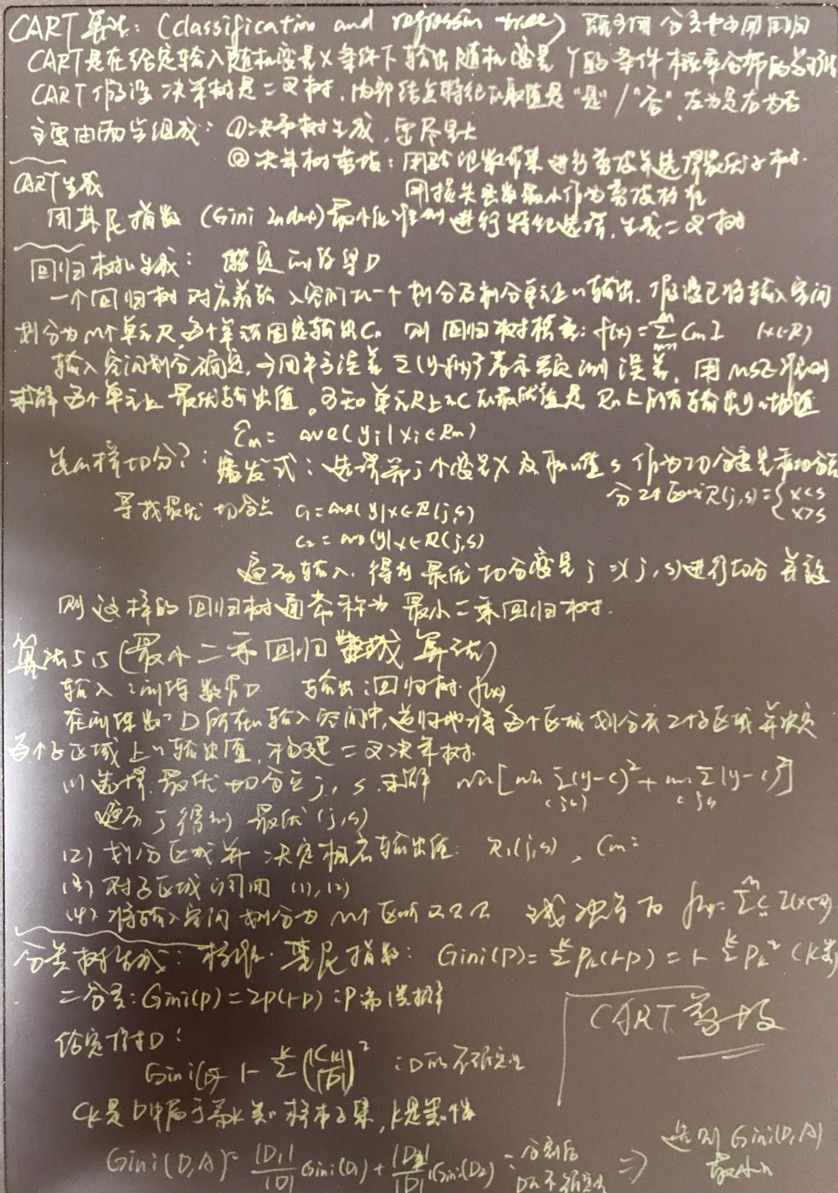 CART算法: (classification and regression tree) 既可用分类也可用回归
CART是在给定输入随机变量X条件下输出随机变量Y的条件概率分布的学习方法
CART假设决策树是二叉树, 内部结点特征取值是"是"/"否", 左为是右为否
主要由两步组成: ①决策树生成, 要尽量大
②决策树剪枝: 用验证数据集进行剪枝并选择最优子树.
用损失函数最小作为剪枝标准
CART生成
用基尼指数 (Gini Index) 最小化准则进行特征选择, 生成二叉树
回归树生成: 给定训练集D
一个回归树对应着输入空间的一个划分及划分单元上的输出. 假设已将输入空间
划分为M个单元R, 每个单元固定输出Cm 则回归树模型: f(x)=∑Cm I (x∈R)
输入空间划分确定, 可用平方误差 ∑(y-f(x))²表示预测误差, 用MSE准则
求解每个单元上最优输出值. 可知单元R上的C的最优值是 Rm上所有输出y的均值
Ĉm = ave(yi|xi∈Rm)
怎么样切分?: 启发式: 选择第j个变量X及取值s作为切分变量和切分点
分2个区域R(j,s)={x<s
x>s
寻找最优切分点 c₁=ave(y|x∈R(j,s)
c₂=ave(y|x∈R(j,s)
遍历输入, 得到最优切分变量j (j,s)进行切分
则这样的回归树通常称为最小二乘回归树.
算法5.5 (最小二乘回归树生成算法)
输入: 训练数据D 输出: 回归树 f(x)
在训练数据D所在的输入空间中, 递归地将每个区域划分成2个子区域并决定
每个子区域上的输出值, 构建二叉决策树
(1) 选择最优切分点j, s, 求解 min[min∑(y-c)²+min∑(y-c)²]
遍历j得到最优(j,s)
(2) 划分区域并决定相应输出值: R₁(j,s), Cm=
(3) 对子区域调用 (1), (2)
(4) 将输入空间划分为M个区域 生成决策树 f(x)=∑Cm I(x∈R)
分类树生成: 标准: 基尼指数: Gini(P)=∑Pk(1-P)=1-∑Pk² (K类)
二分类: Gini(p)=2p(1-p) :P第1类概率
给定样本D:
Gini(D)=1-∑(|Ck|/|D|)² :D的不确定性
Ck是D中属于第k类的样本子集, K是类个数
Gini(D,A)=|D₁|/|D| Gini(D₁)+|D₂|/|D| Gini(D₂) :分割后
D的不确定性
⇒ 选则Gini(D,A)
最小的
CART剪枝